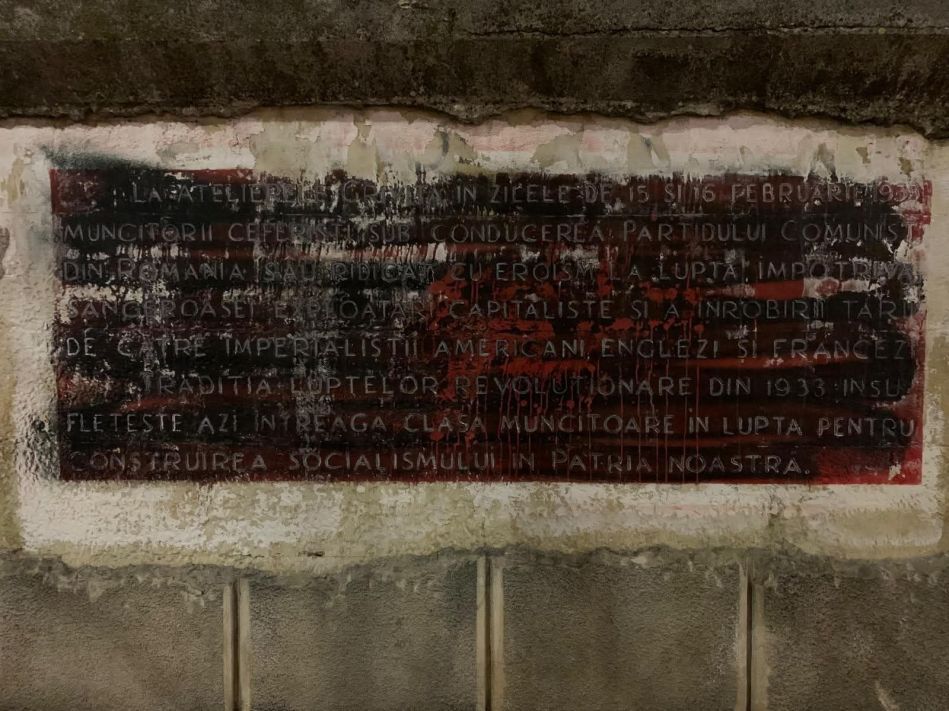 LA ATELIERELE GRIVIȚA IN ZILELE DE 15 SI 16 FEBRUARIE 1933
MUNCITORII CEFERIȘTI SUB CONDUCEREA PARTIDULUI COMUNIS
DIN ROMANIA SAU RIDICAT CU EROISM LA LUPTA IMPOTRIVA
SANGEROASEI EXPLOATARI CAPITALISTE SI A INROBIRII TARII
DE CATRE IMPERIALISTII AMERICANI ENGLEZI SI FRANCEZI
TRADITIA LUPTELOR REVOLUTIONARE DIN 1933 INSU
FLETESTE AZI INTREAGA CLASA MUNCITOARE IN LUPTA PENTRU
CONSTRUIREA SOCIALISMULUI IN PATRIA NOASTRA.